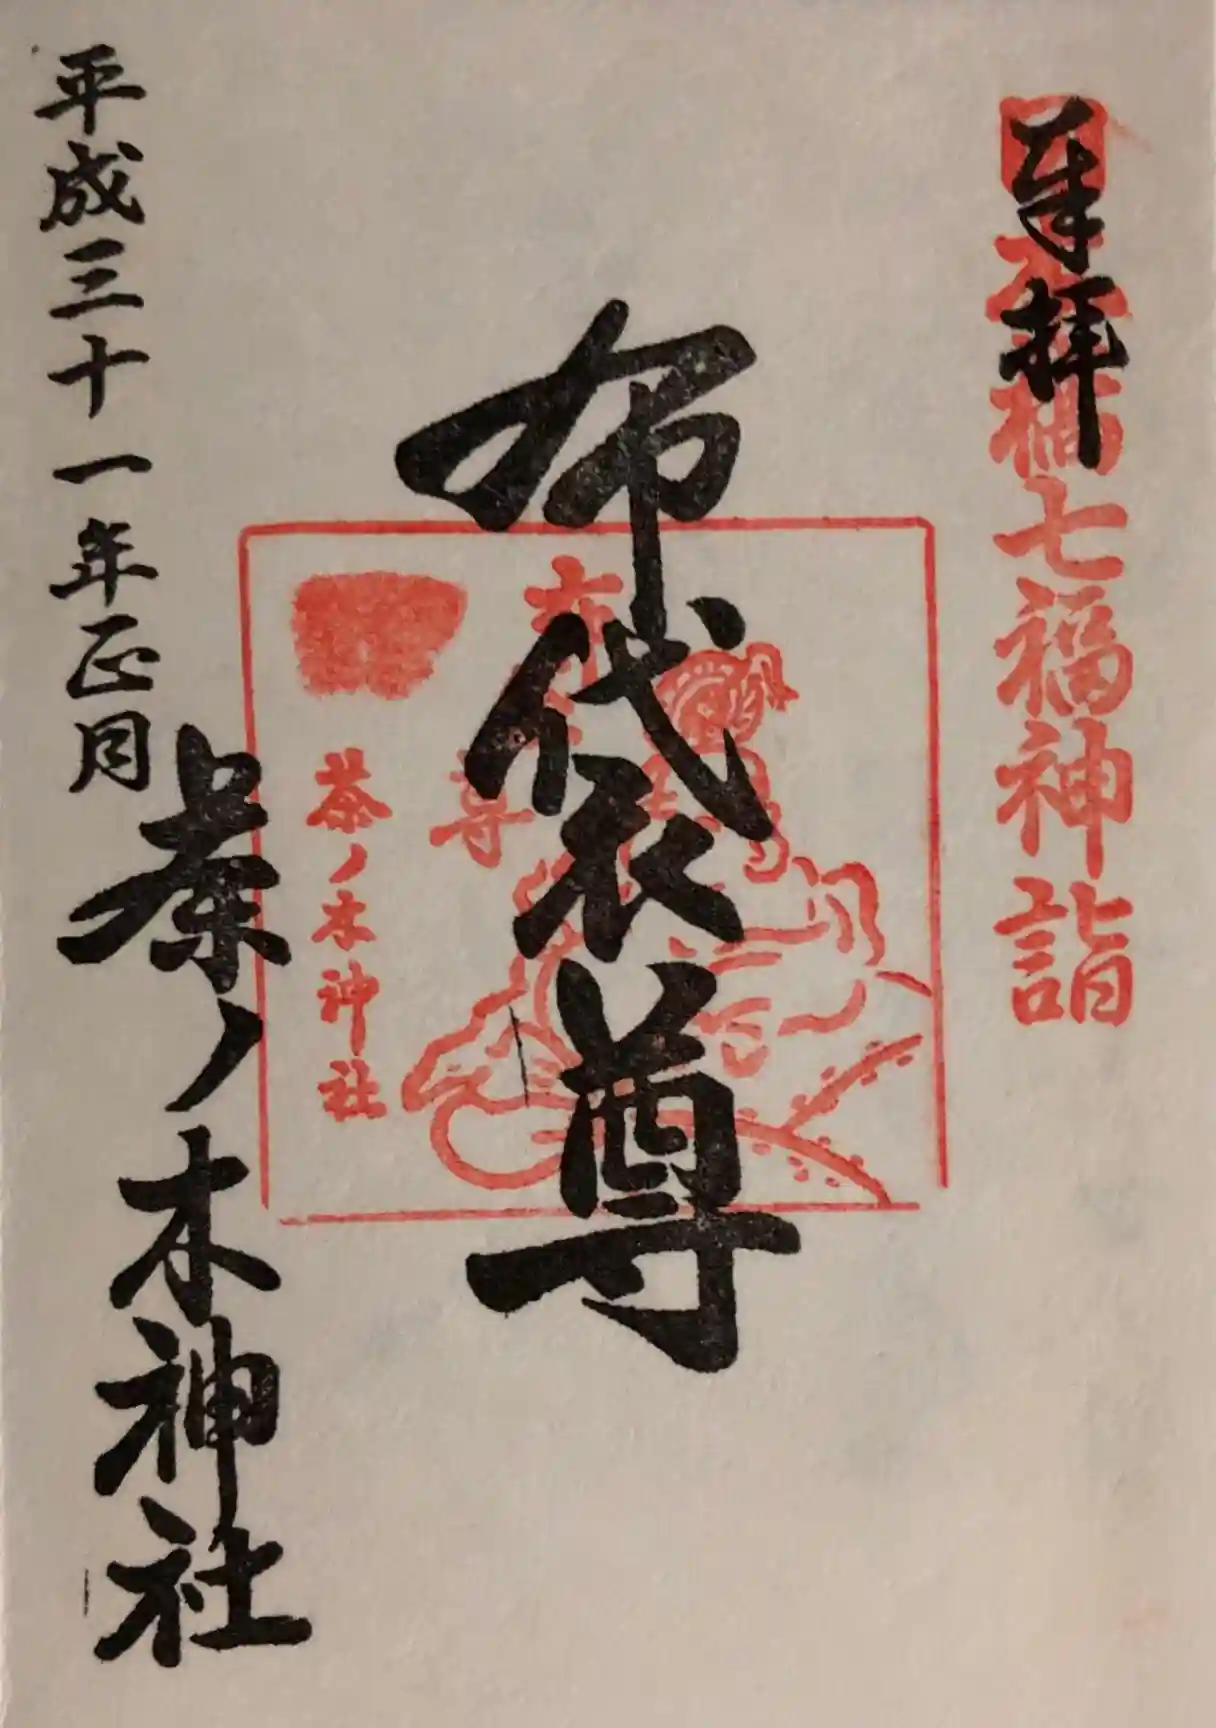 奉拝
七福神詣
布袋尊
布
尊
茶ノ木神社
平成三十一年正月
茶ノ木神社